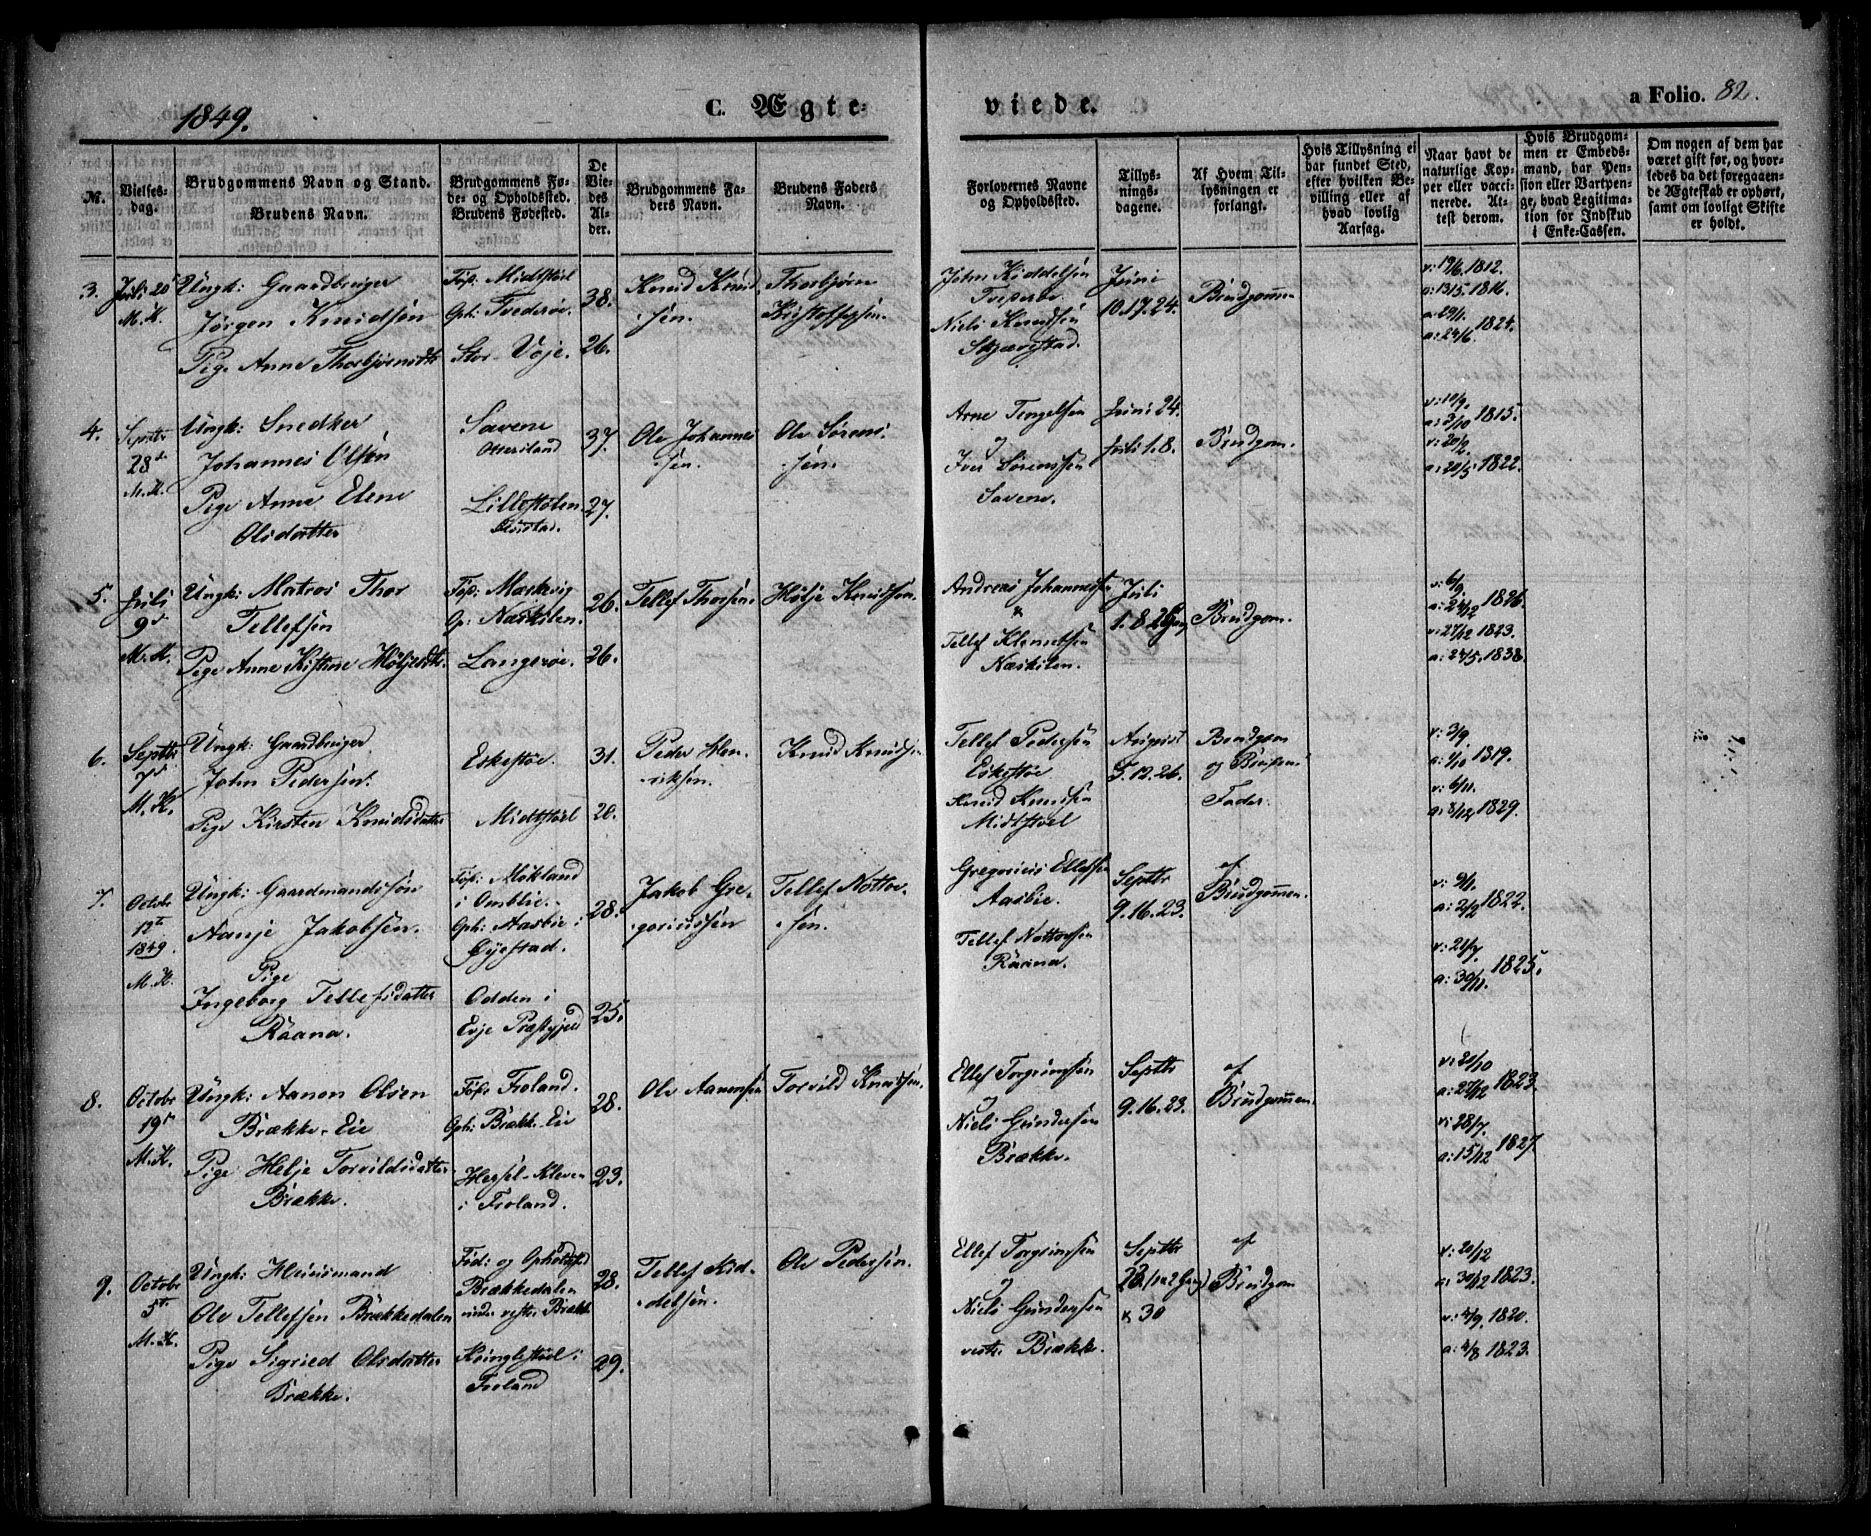 1849.
C. Ægte-
viede.
a Folio. 82.
№.
Vielses-
dag.
Brudgommens Navn og Stand.
Brudens Navn.
Brudgommens Fø-
de- og Opholdssted.
Brudens Fødested.
De
Vie-
des
Al-
der.
Brudgommens Fa-
ders Navn.
Brudens Faders
Navn.
Forlovernes Navne
og Opholdssted.
Tillys-
nings-
dagene.
Af Hvem Til-
lysningen er
forlangt.
Hvis Tillysning ei
har fundet Sted,
efter hvilken Be-
villing eller af
hvad lovlig
Aarsag.
Naar havt de
naturlige Kop-
per eller vacci-
nerede. At-
test derom.
Hvis Brudgom-
men er Embeds-
mand, har Pen-
sion eller Vartpen-
ge, hvad Legitima-
tion for Indskud
i Enke-Cassen.
Om nogen af dem har
været gift før, og hvor-
ledes da det foregaaen-
de Ægteskab er ophørt,
samt om lovligt Skifte
er holdt.
3.
Juli 20
M.K.
Ungk: Gaardbruger
Jørgen Knudsen
Pige Anne Thorbjørnsdtr
Føds: Midtstøl
Oph: Tvederøe.
Stor-Voje.
38.
26.
Knud Knud-
sen.
Thorbjørn
Kristoffersen.
John Kiddelsen
Niels Knudsen
Skjævestad.
Juni
10.17.24.
Brudgommen
v: 19/6. 1812.
a: 13/5. 1816.
a: 29/1.
a: 24/6. 1824.
4.
Septbr
28de
M.K.
Ungk: Snedker
Johannes Olsen
Pige Anne Elene
Olsdatter
Savene
Lillestølen
37.
27.
Ole Johannes-
sen.
Ole Sørens-
sen.
Arne Tengelsen
Iver Sørenssen
Savene.
Juni 24.
Juli 1.8.
Brudgom.
v: 10/9.
a: 3/10 1815.
v: 20/2.
a: 20/5 1822.
5.
Juli
9de
M.K.
Ungk: Matros Thor
Tellefsen
Pige Anne Kistine Høljesdtr.
Føds: Marsvig
Op: Næskilen.
Langesøe.
26.
26.
Tellef Thorsen.
Hølje Knudsen.
Andreas Johannessen
&
Tellef Klemetsen
Næskilen.
Juli
1. 8. 2 Gang
Brudgom.
v: 6/9.
a: 24/12 1826.
v: 27/12 1823.
a: 24/5. 1838.
6.
Septbr
7de
M.K.
Ungk: Gaardbruger
John Pedersen.
Pige Kirsten Knudsdatter
Eskestøe.
Midtstøel
31.
20.
Peder Hen-
riksen.
Knud Knudsen
Tellef Pedersen
Eskestøe
Knud Knudsen
Midtstøel
August
5.12.26.
Brudgom
og Brudens
Fader.
v: 3/9.
a: 1/10 1819.
v: 6/11.
a: 8/12 1829.
7.
Octobr
12te
1849.
M.K.
Ungk: Gaardmandssøn
Aanje Jakobsen.
Pige
Ingeborg Tellefsdatter
Raana.
Føds: Møkland
i Omblie.
Oph: Aasbie i
Øyestad.
Odden i
Evje Præstgjeld
28.
25.
Jakob Gre-
goriussen
Tellef Nottov-
sen.
Gregorius Ellefsen
Aasbie.
Tellef Nottovsen
Raana.
Septbr
9.16.23.
af
Brudgommen.
v: 9/1.
a: 2/2 1822.
v: 21/7.
a: 30/11. 1825.
8.
Octobr
19de
M.K.
Ungk: Aanon Olsen
Brække-Eie
Pige Helje Torvildsdatter
Brække.
Føds Froland.
Oph: Brække Eie
Hessel-Kleven
i Froland.
28.
23.
Ole Aanonsen
Torvild Knudsen.
Ellef Torgrimsen
Niels Gundersen
Brække.
Septbr
9.16.23.
af
Brudgommen.
v: 20/10
a: 27/12 1823.
v: 28/7.
a: 15/12 1827.
9.
Octobr
5te
M.K.
Ungk: Huusmand
Ole Tellefsen Brækkedalen
Pige Sigried Olsdatter
Brække.
Fød: og Opholdsst:
Brækkedalen
under vestre Brække
Kringlestøel i
Froland
28.
29.
Tellef Kid-
delsen.
Ole Pedersen.
Ellef Torgrimsen
Niels Gundersen
vestr. Brække.
Septbr
23. (1ste 2 Gang)
& 30
af
Brudgom
v: 20/12
a: 30/12 1823.
v: 4/9. 1820.
a: 4/8 1823.